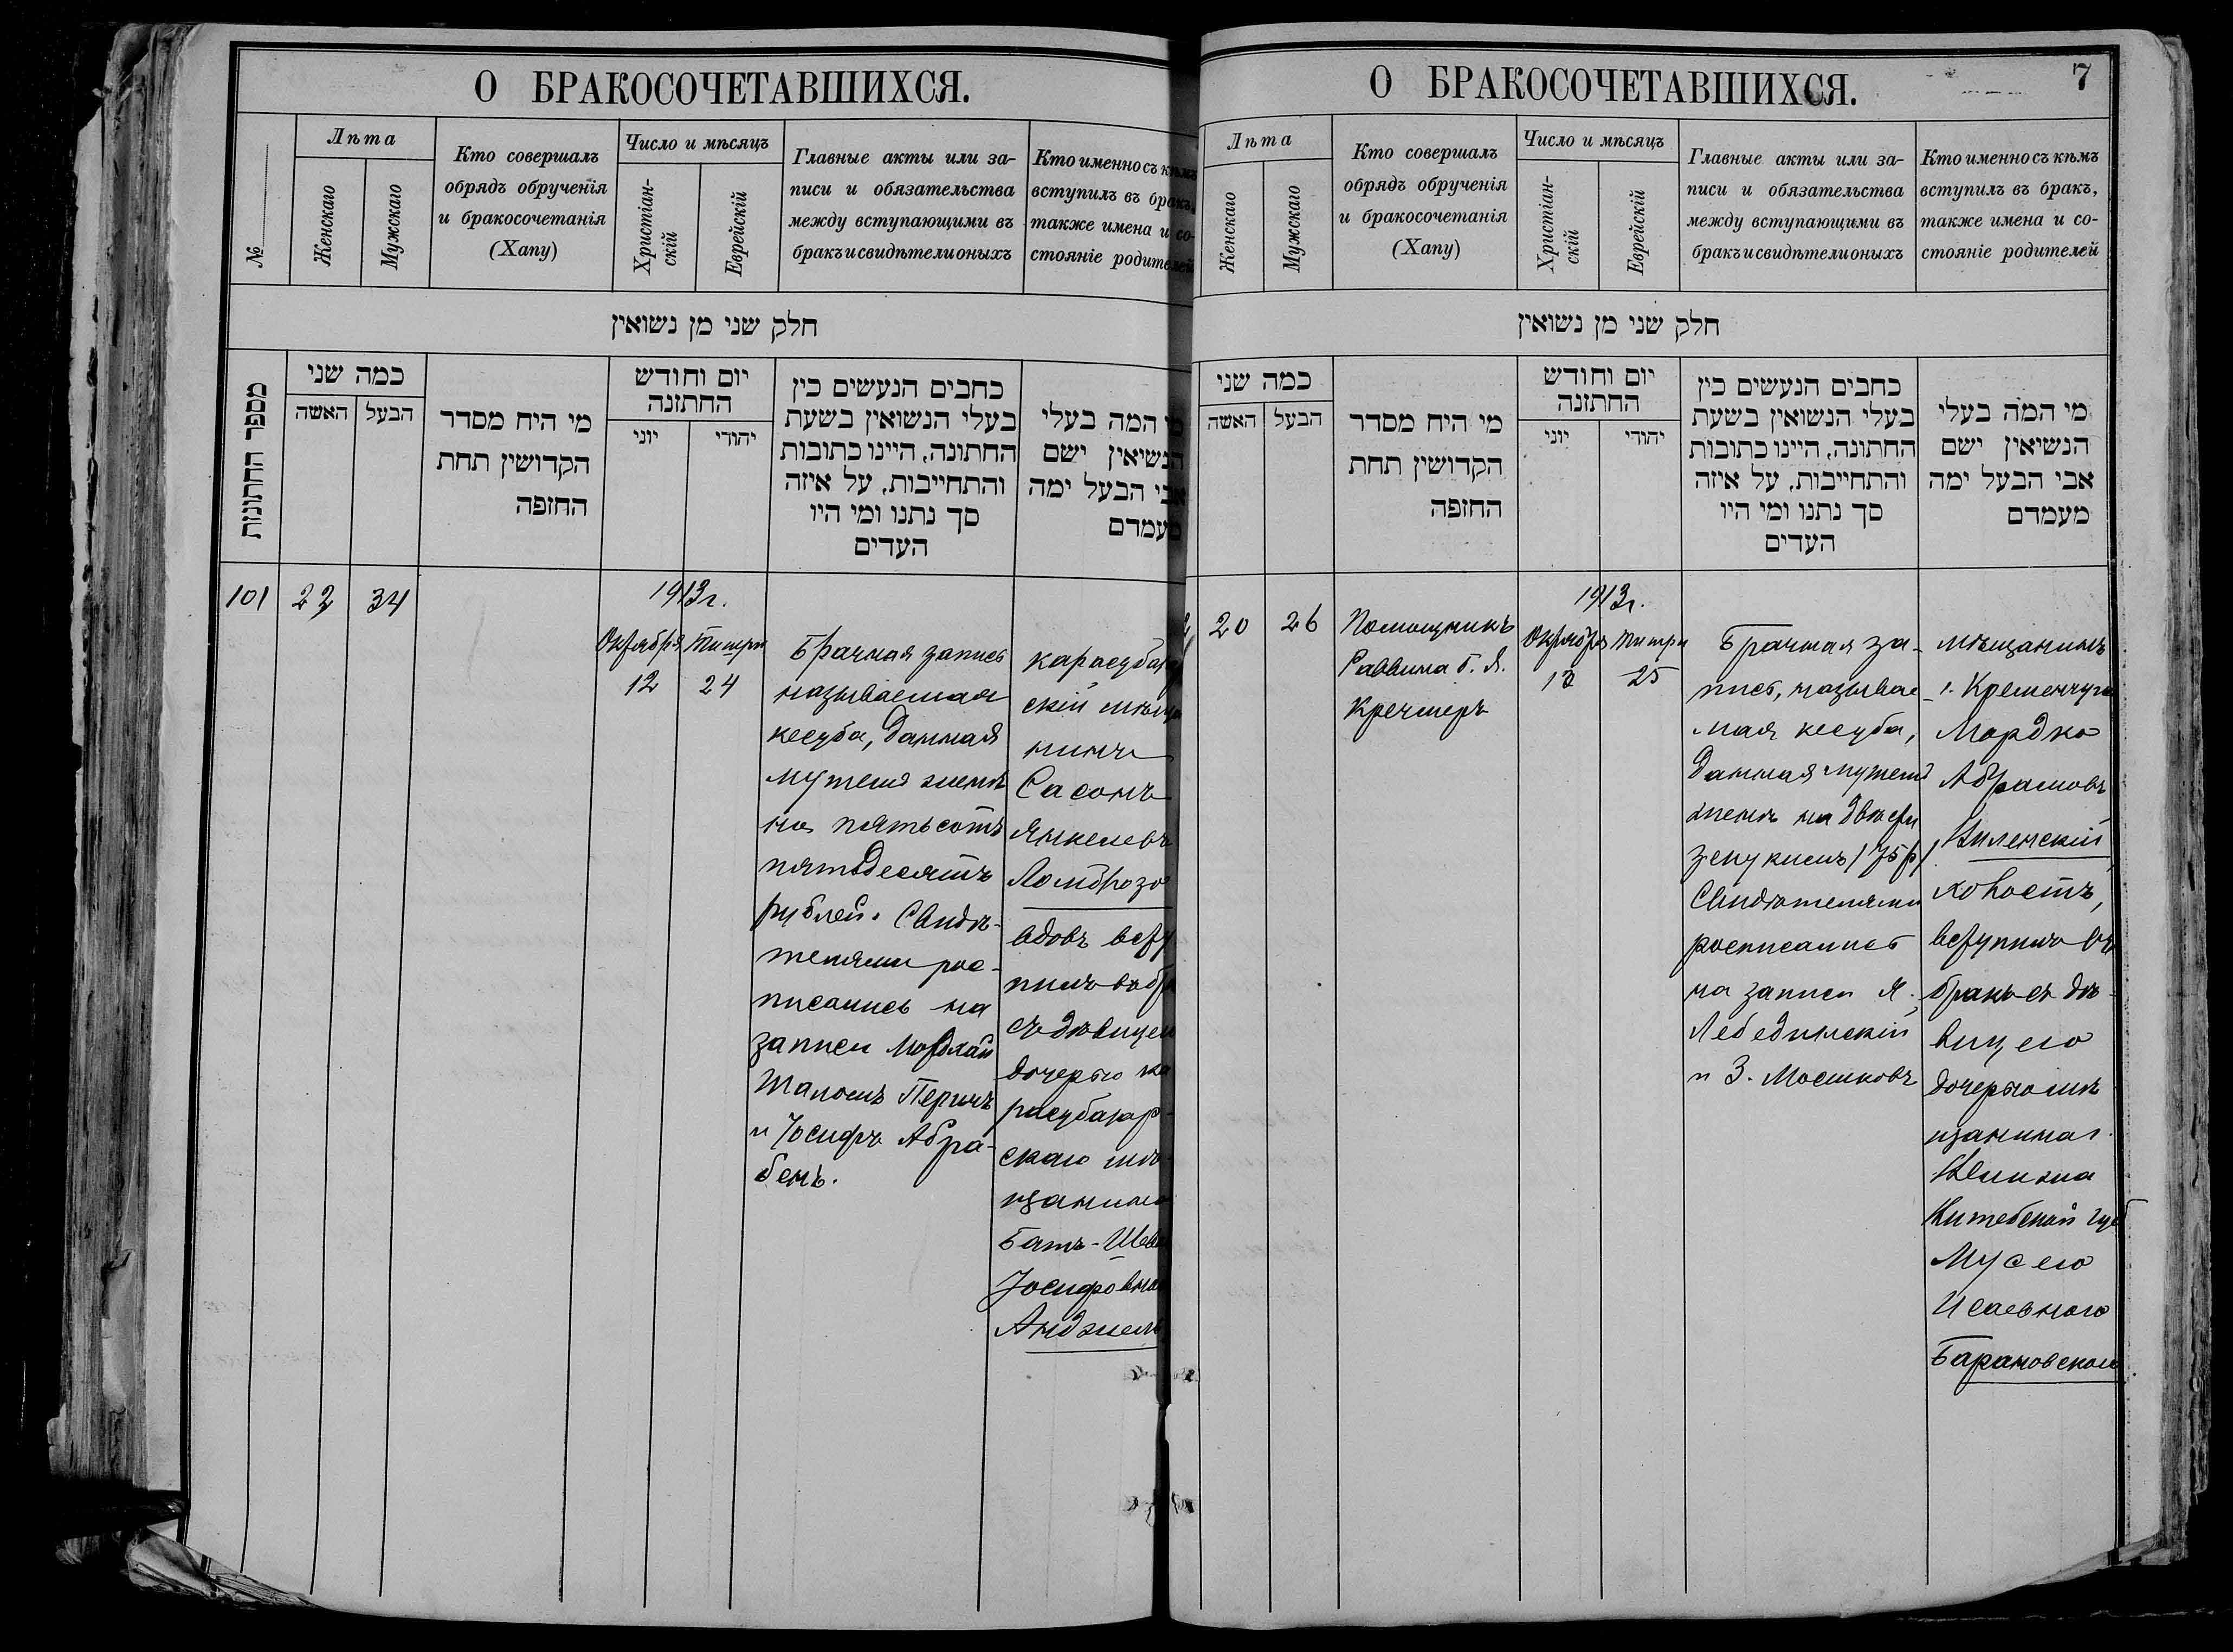 О БРАКОСОЧЕТАВШИХСЯ.
№
Лѣта
Женскаго
Мужскаго
Кто совершалъ
обрядъ обрученія
и бракосочетанія
(Хапу)
Число и мѣсяцъ
Христіан-
скій
Еврейскій
Главные акты или за-
писи и обязательства
между вступающими въ
бракъ и свидѣтели оныхъ
Кто именно съ кѣмъ
вступилъ въ бракъ,
также имена и со-
стояніе родителей
חלק שני מן נשואין
מספר החתונות
כמה שני
האשה
הבעל
מי היח מסדר
הקדושין תחת
החזפה
יום וחודש
החתזנה
יוני
יהודי
כחבים הנעשים כין
בעלי הנשואין בשעת
החתונה, היינו כתובות
והתחייבות, על איזה
סך נתנו ומי היו
העדים
מי המה בעלי
הנשיאין ישם
אבי הבעל ימה
מעמדם
101
22
34
1913г.
Октября
12
Тишри
24
Брачная запись
называемая
кесуба, данная
мужемъ женѣ
на пятьсотъ
пятьдесятъ
рублей. Свидѣ-
телями рос-
писались на
записи Мордхай
Шаломъ Перичъ
и Іосифъ Абра-
бенъ.
карасубазар
скій мѣща
нинъ
Сасонъ
Янкелевъ
Ломброзо
вдовъ всту
пилъ въ бр
съ дѣвицей
дочерью ка
расубазар-
скаго мѣ-
щанина
Батъ-Шева
Іосифовной
Анджель
О БРАКОСОЧЕТАВШИХСЯ.
7
Лѣта
Женскаго
Мужскаго
Кто совершалъ
обрядъ обрученія
и бракосочетанія
(Хапу)
Число и мѣсяцъ
Христіан-
скій
Еврейскій
Главные акты или за-
писи и обязательства
между вступающими въ
бракъ и свидѣтели оныхъ
Кто именно съ кѣмъ
вступилъ въ бракъ,
также имена и со-
стояніе родителей
חלק שני מן נשואין
כמה שני
האשה
הבעל
מי היח מסדר
הקדושין תחת
החזפה
יום וחודש
החתזנה
יוני
יהודי
כחבים הנעשים כין
בעלי הנשואין בשעת
החתונה, היינו כתובות
והתחייבות, על איזה
סך נתנו ומי היו
העדים
מי המה בעלי
הנשיאין ישם
אבי הבעל ימה
מעמדם
20
26
Помощникъ
Раввина Б. Я.
Кречмеръ
1913г.
Октября
Тишри
25
Брачная за-
пись, называе-
мая кесуба,
данная мужемъ
женѣ на двѣсти
зекукимъ /75 р/
Свидѣтелями
росписались
на записи Я.
Лебединскій
и З. Мошковъ
мѣщанинъ
г. Кременчуга
Мордко
Абрамовъ
Виленскій
холостъ,
вступилъ въ
бракъ съ дѣ-
вицею
дочерью мѣ-
щанина г.
Велижа
Витебской губ
Мусею
Исаевною
Барановскою